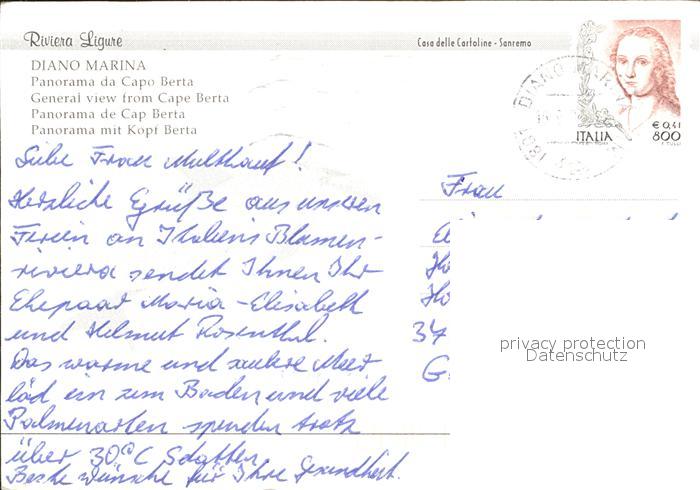 Riviera Ligure
Casa delle Cartoline - Sanremo
DIANO MARINA
Panorama da Capo Berta
General view from Cape Berta
Panorama de Cap Berta
Panorama mit Kopf Berta
DIANO MARINA
ITALIA
€ 0,41
800
Liebe Frau Multhauf!
Herzliche Grüße aus unseren
Ferien an Italiens Blumen-
riviera sendet Ihnen Ihr
Ehepaar Maria-Elisabeth
und Helmut Rosenthal.
Das warme und saubere Meer
läd ein zum Baden und viele
Palmenarten spenden trotz
über 30°C Schatten.
Beste Wünsche für Ihre Gesundheit.
Frau
37
G
privacy protection
Datenschutz